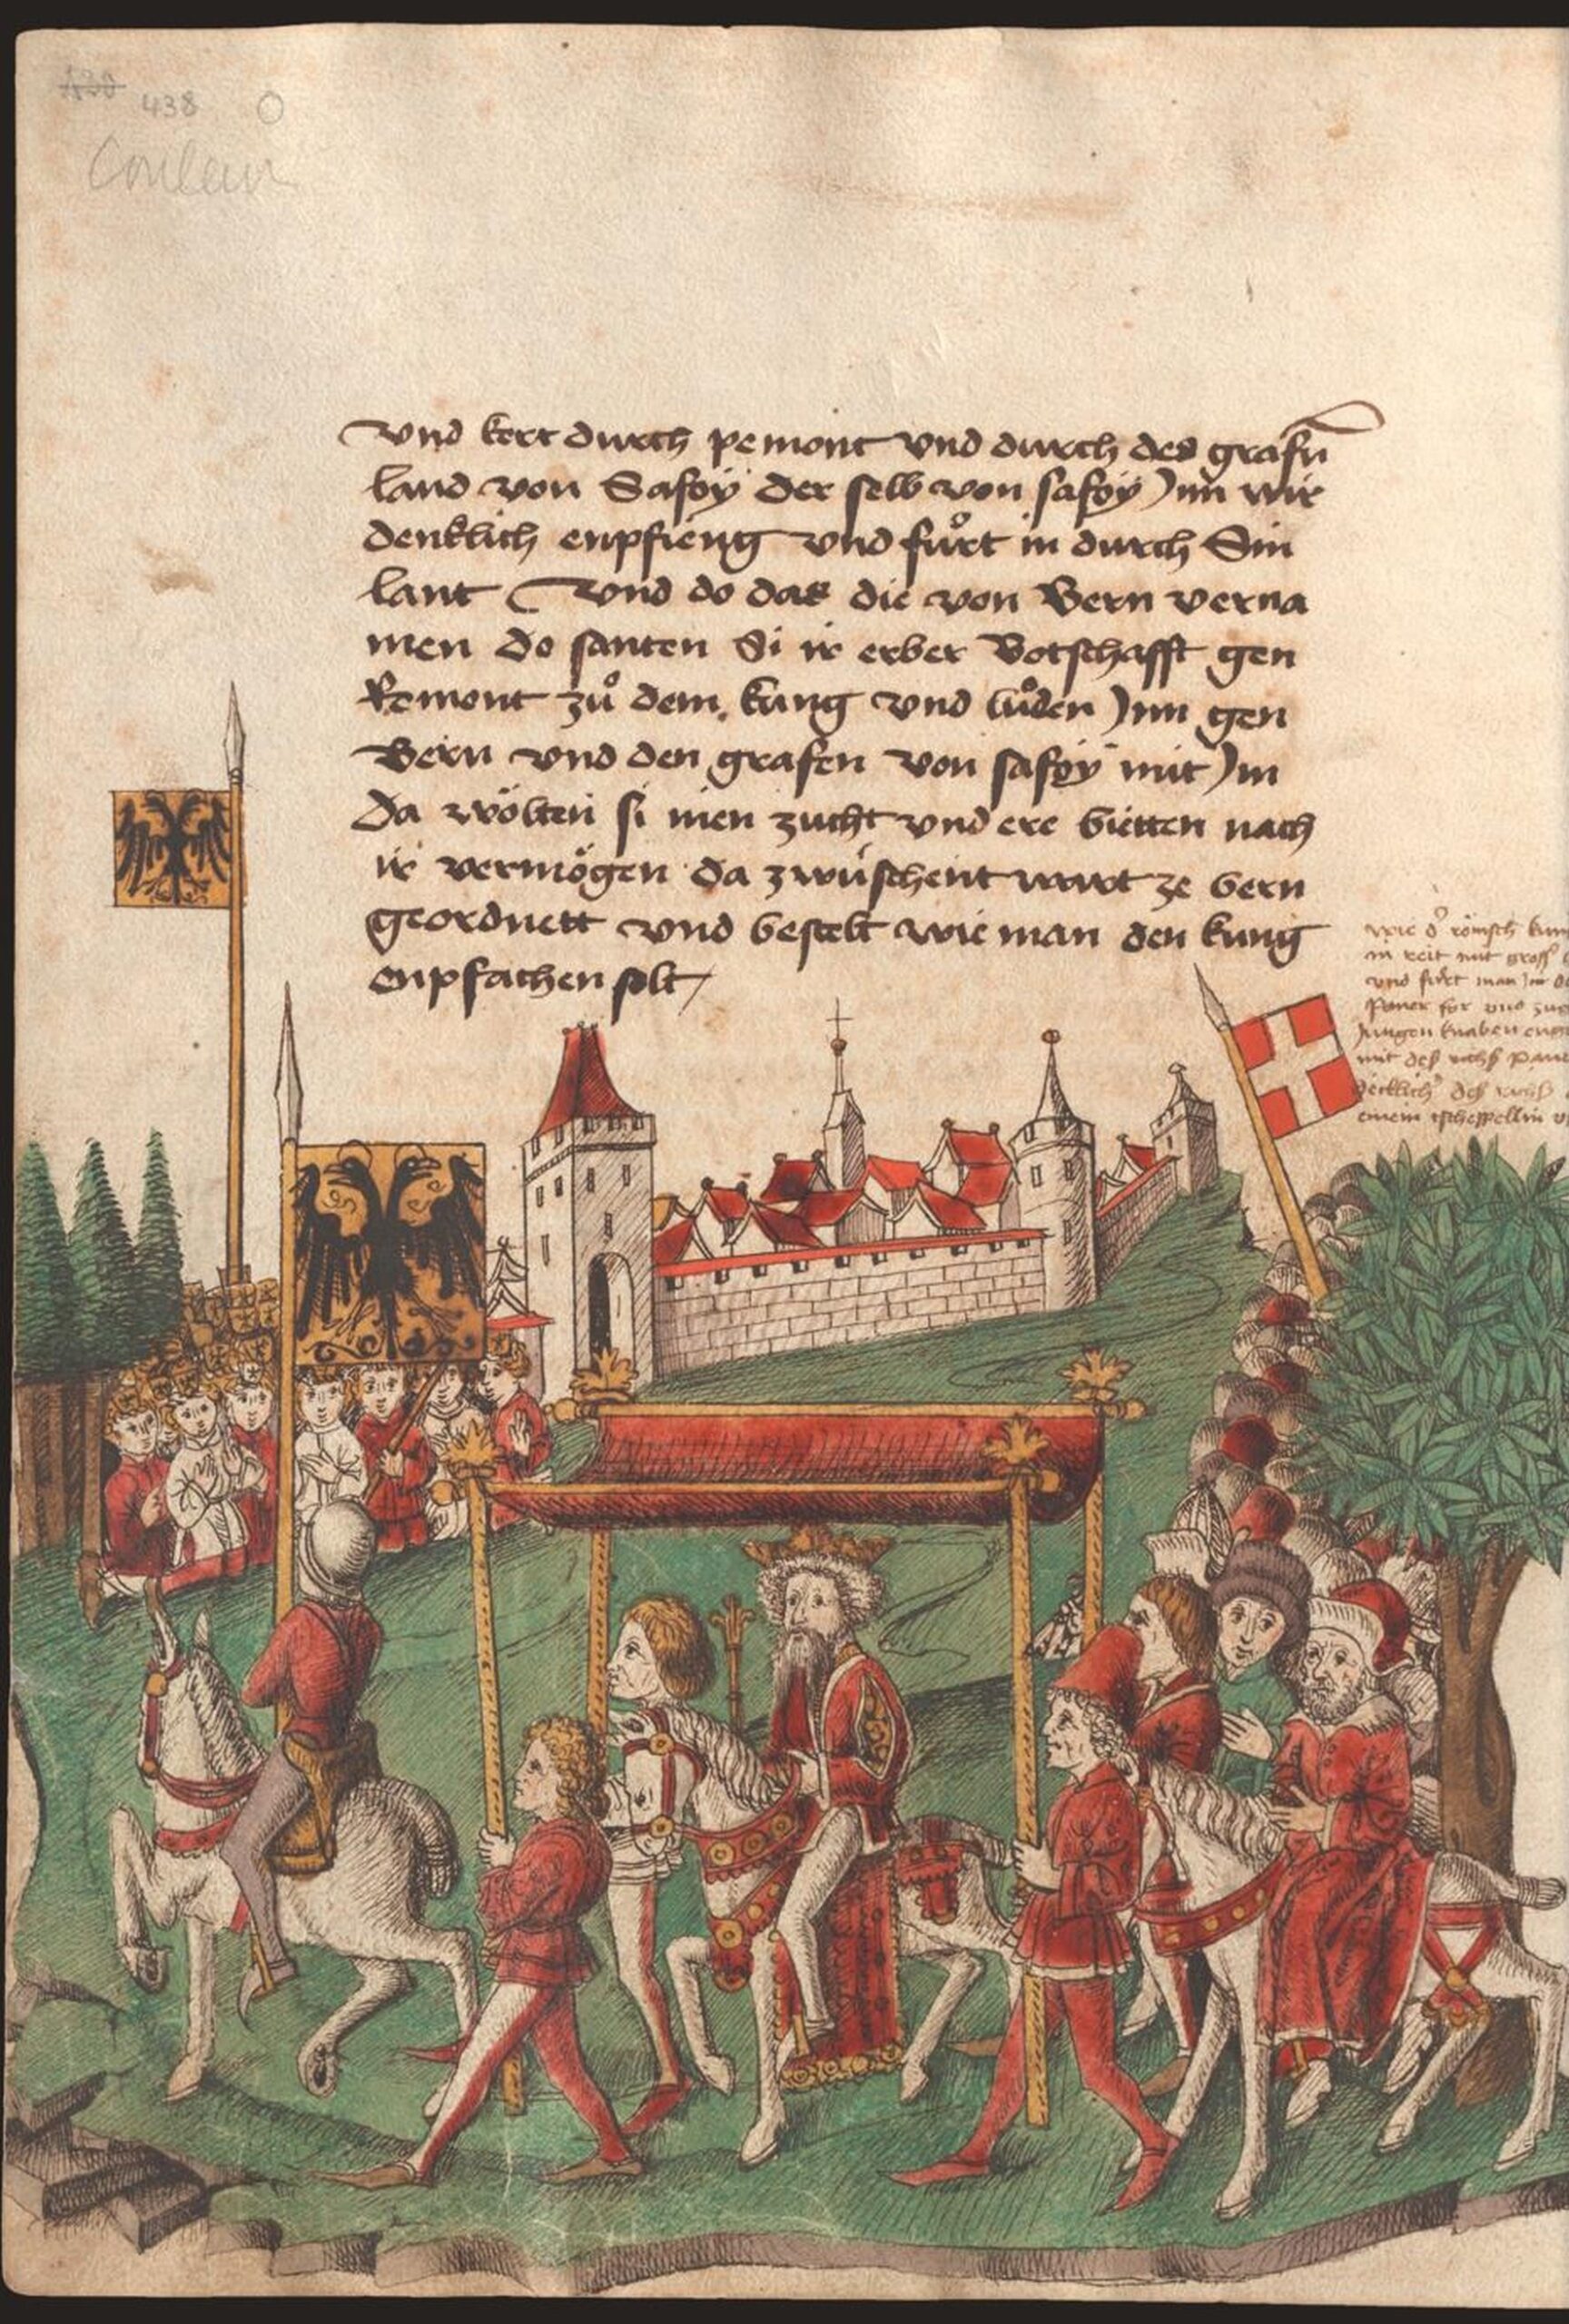 438 O
Couleur
vnd kert durch pemont vnd durch des grafen
land von Safoy der selb von safoy Jnn wir
denklich enpfieng vnd fuͦrt in durch Sin
lant Vnd do das die von Bern verna
men do santen Si ir erber Botschafft gen
Remont zuͦ dem kung vnd luͦden Jnn gen
Bern vnd den grafen von safoy mit Jm
da wölten si inen zucht vnd ere bietten nach
ir vermögen da zwüschent wart ze bern
geordnett vnd bestelt wie man den kung
enpfachen solt
wie der römsch kun
in reit mit gross
vnd fürt man im
Paner for vnd
Jungen knaben
mit des richs Pane
des richs
einem tscheppellin